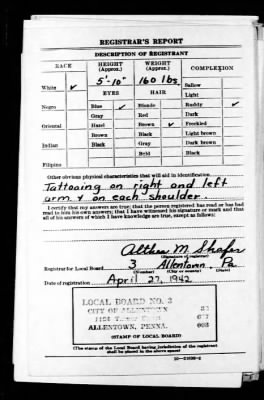 REGISTRAR'S REPORT
DESCRIPTION OF REGISTRANT
RACE HEIGHT (Approx.) WEIGHT (Approx.) COMPLEXION
5'-10" 160 lbs. Sallow
White ✓ EYES HAIR Light
Negro Blue ✓ Blonde Ruddy ✓
Gray Red Dark
Oriental Hazel Brown ✓ Freckled
Brown Black Light brown
Indian Black Gray Dark brown
Bald Black
Filipino
Other obvious physical characteristics that will aid in identification
Tattooing on right and left
arm & on each shoulder.
I certify that my answers are true; that the person registered has read or has had
read to him his own answers; that I have witnessed his signature or mark and that
all of his answers of which I have knowledge are true, except as follows:
Althea M. Shafer
(Signature of registrar)
Registrar for Local Board 3 Allentown Pa.
(Number) (City or county) (State)
Date of registration April 27, 1942
LOCAL BOARD NO. 3
CITY OF ALLENTOWN
ALLENTOWN, PENNA.
(STAMP OF LOCAL BOARD)
(The stamp of the Local Board having jurisdiction of the registrant
shall be placed in the above space)